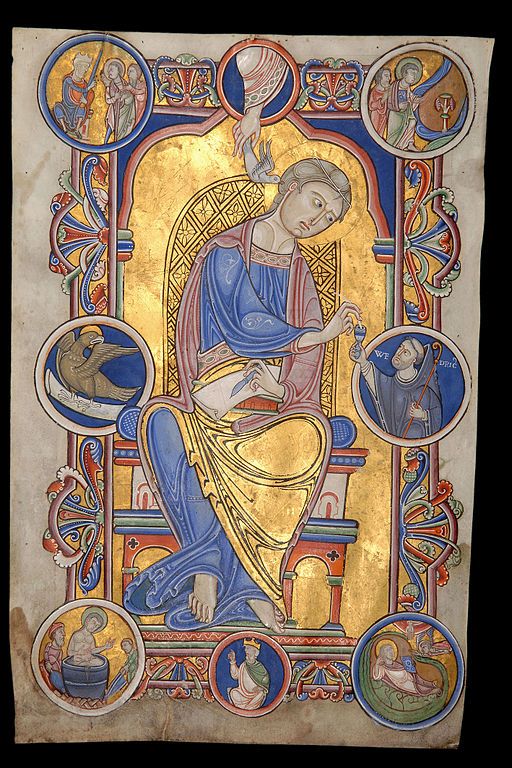 WE
DRIC'